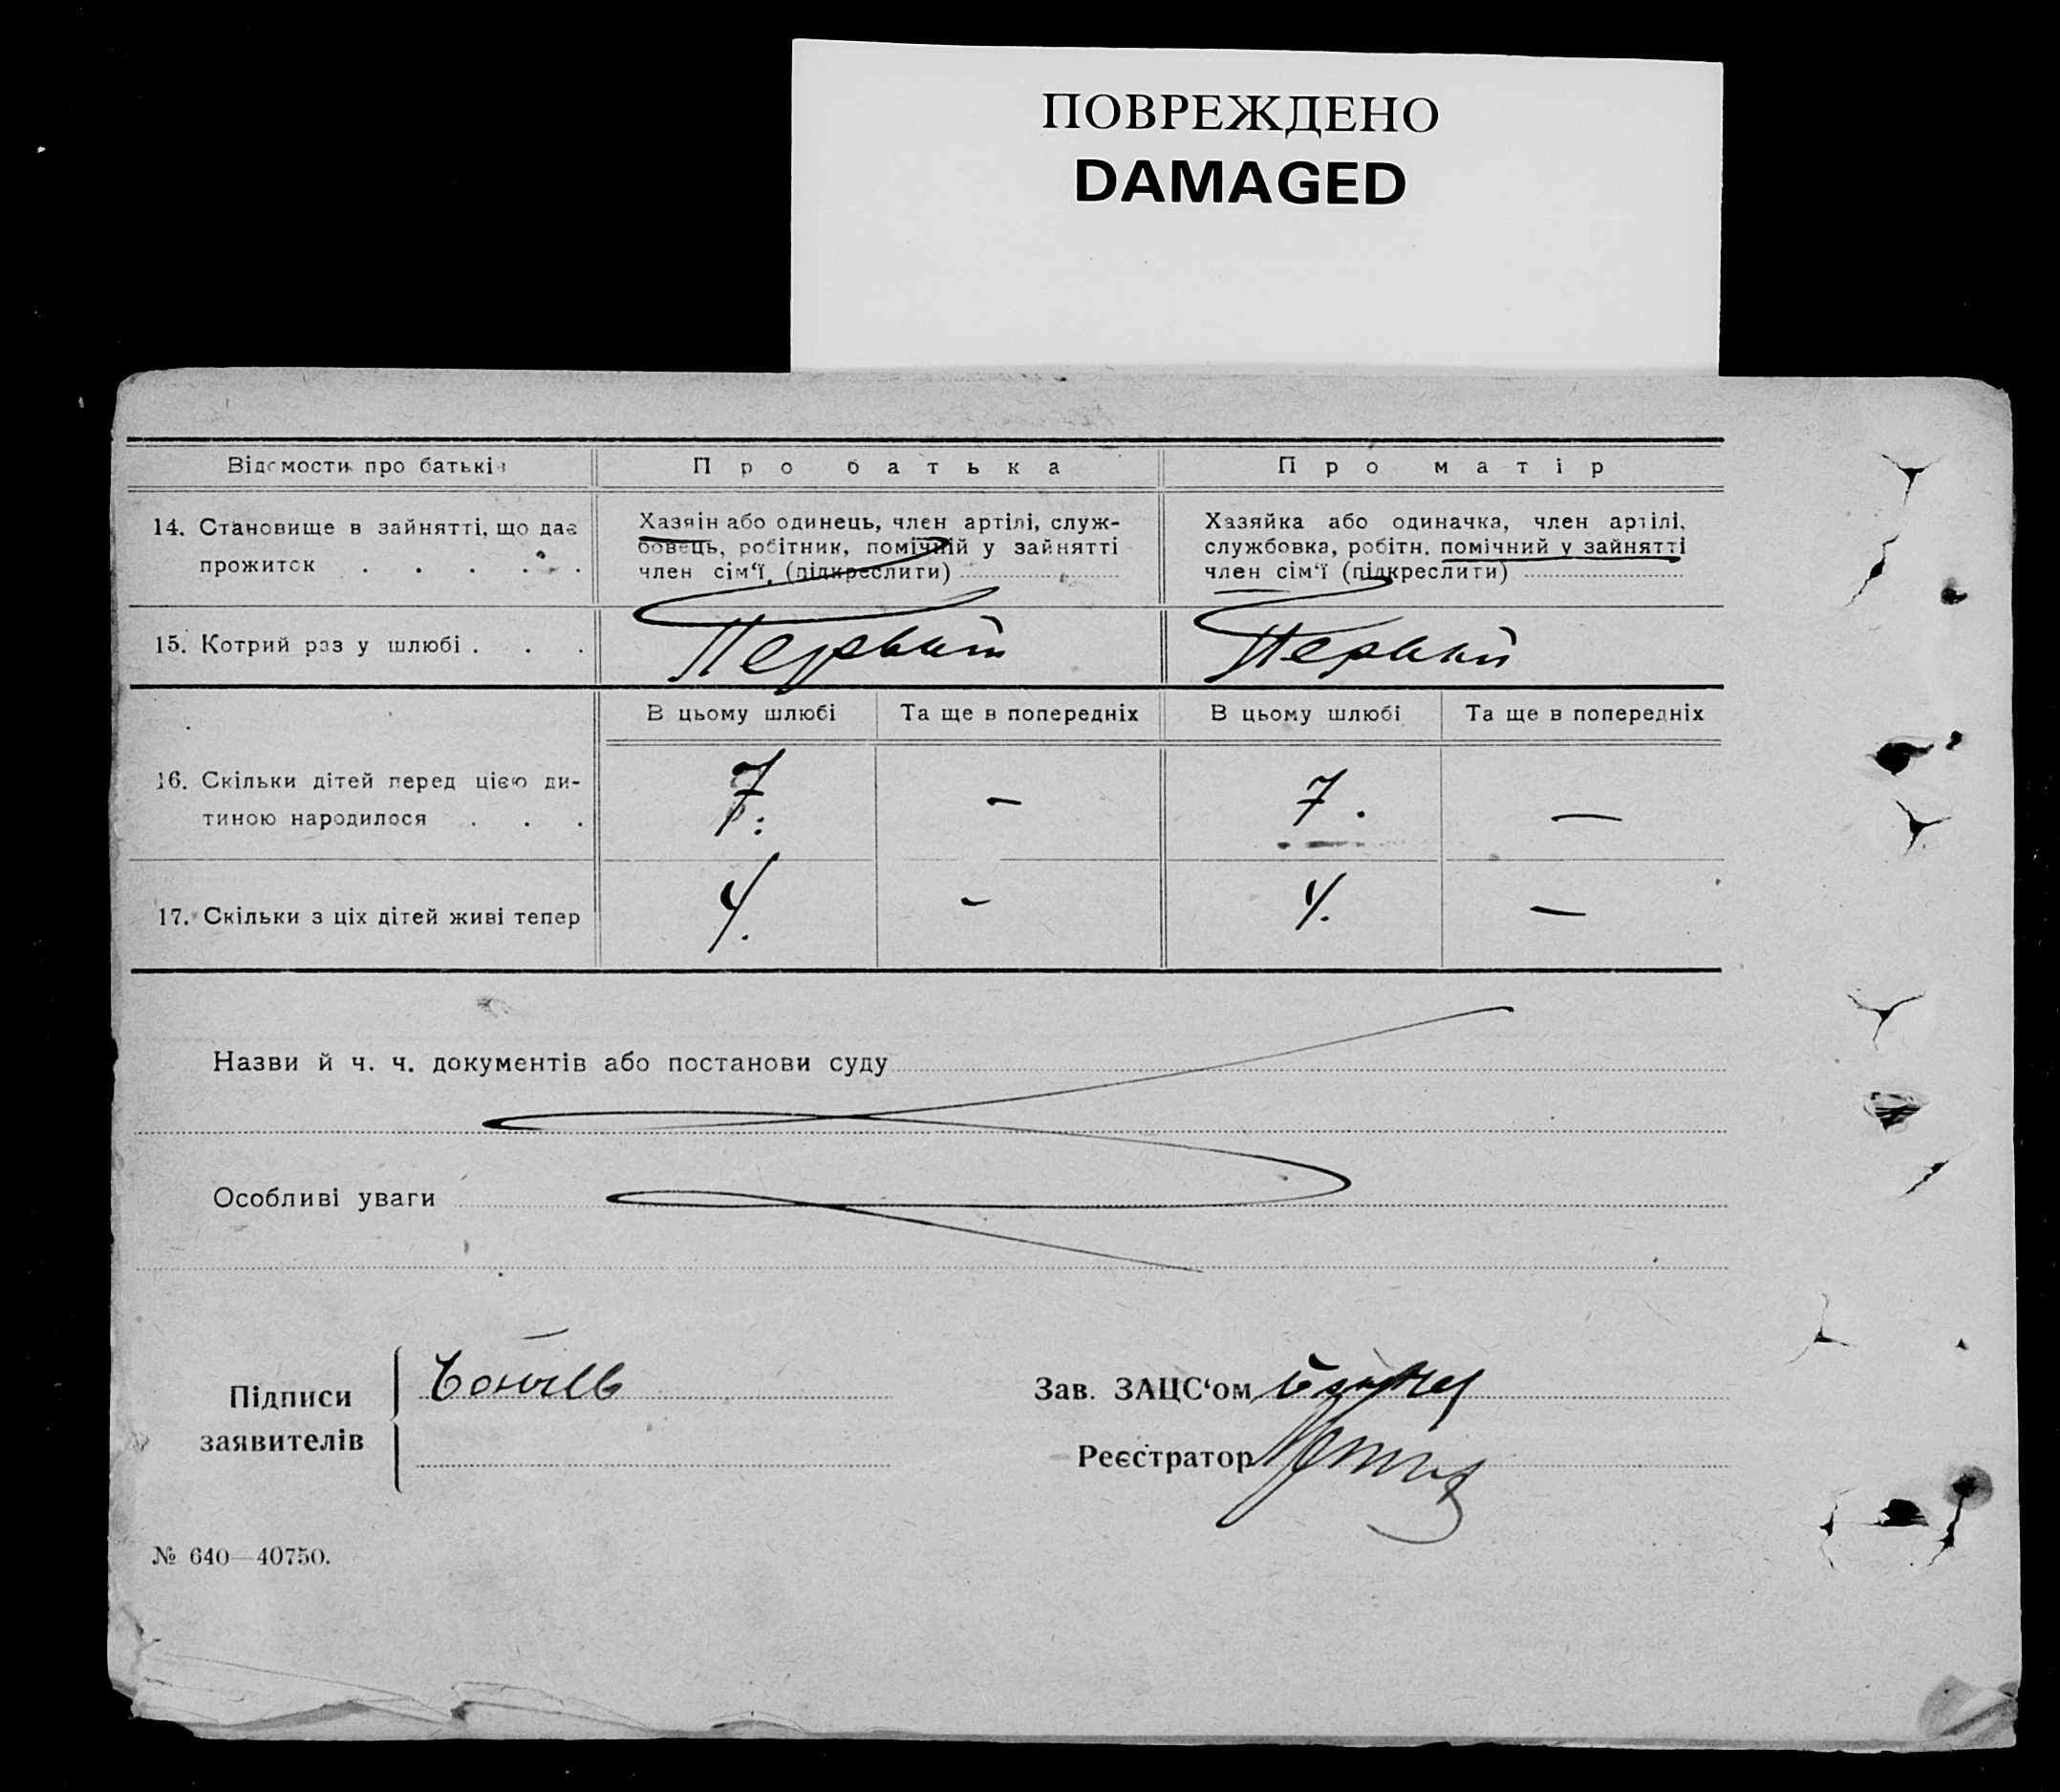 ПОВРЕЖДЕНО
DAMAGED
Відомости про батьків
Про батька
Про матір
14. Становище в зайнятті, що дає
прожиток . . . . .
Хазяїн або одинець, член артілі, служ-
бовець, робітник, помічний у зайнятті
член сім‘ї. (підкреслити)
Хазяйка або одиначка, член артілі,
службовка, робітн. помічний у зайнятті
член сім‘ї (підкреслити)
15. Котрий раз у шлюбі . . .
Первый
Первый
В цьому шлюбі
Та ще в попередніх
В цьому шлюбі
Та ще в попередніх
16. Скільки дітей перед цією ди-
тиною народилося . . .
7. – 7. —
17. Скільки з ціх дітей живі тепер
4. – 4. —
Назви й ч. ч. документів або постанови суду
Особливі уваги
Підписи
заявителів
Зав. ЗАЦС‘ом
Реєстратор
№ 640—40750.